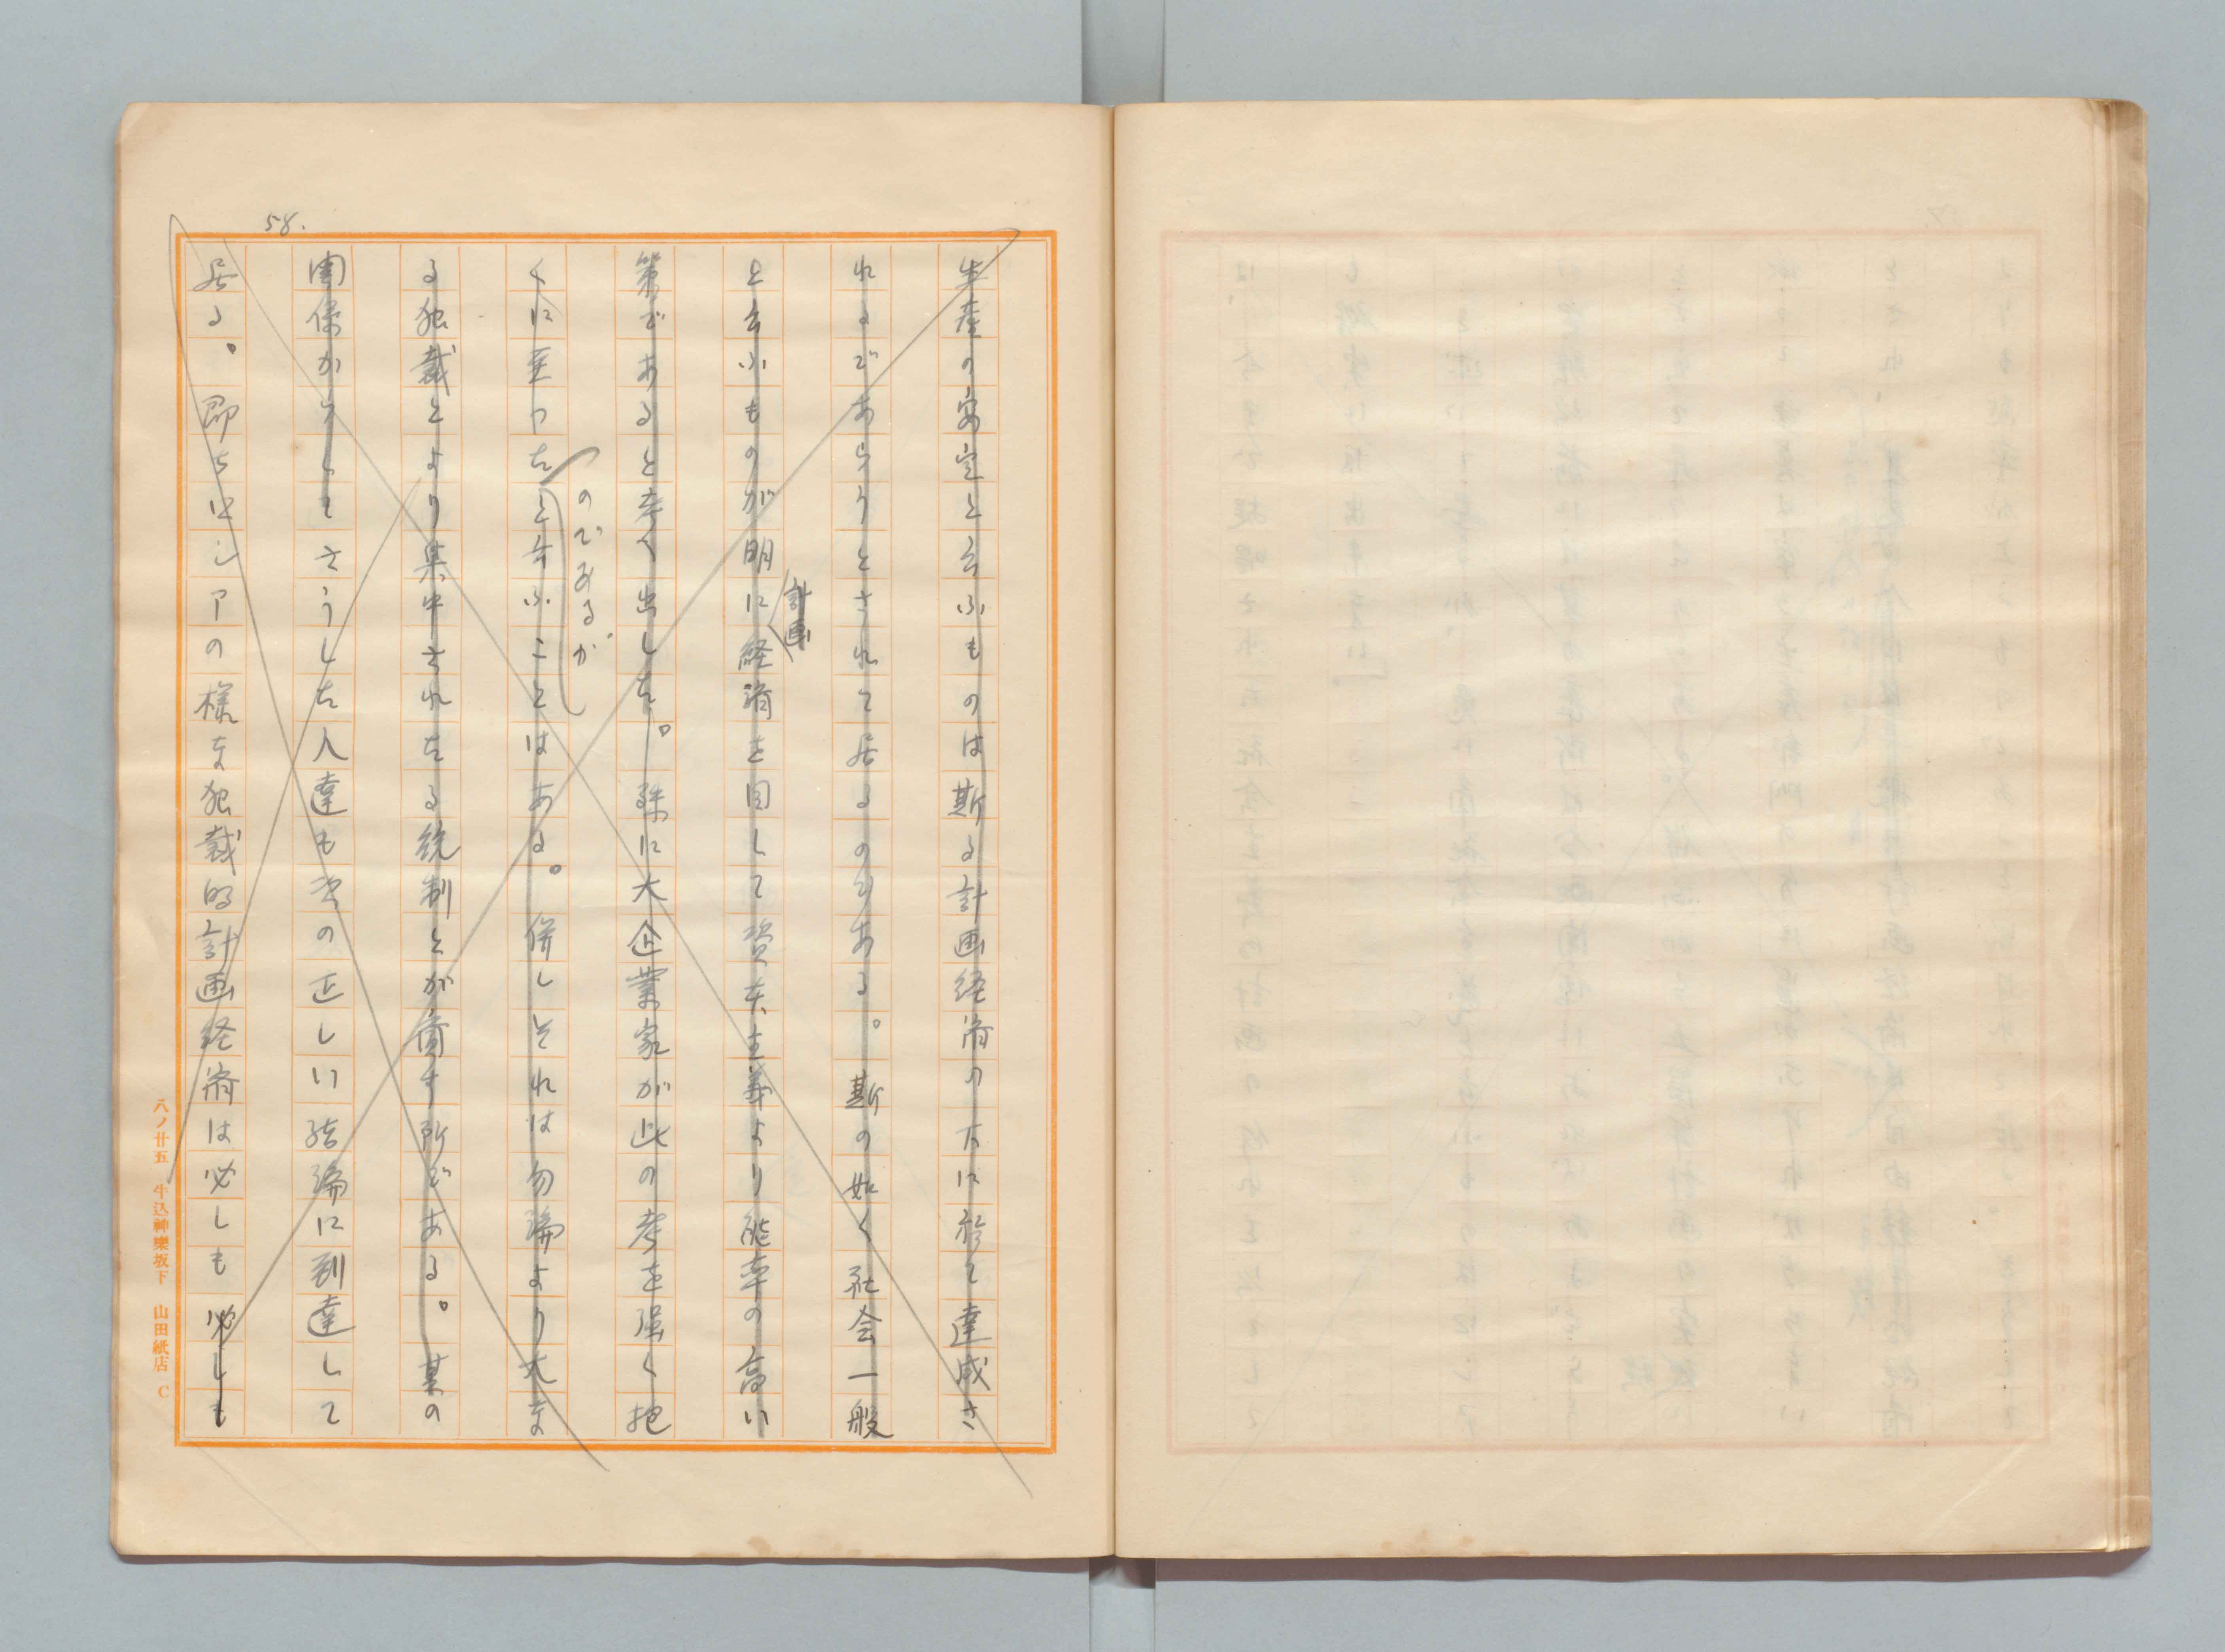 58.
生産の安定と云ふものは斯る計画経済の下に於て達成さ
れるであらうとされて居るのである。斯の如く社会一般
と云ふものが明に計画経済を目して資本主義より能率の高い
第であると考へ出した。殊に大企業家が此の考を強く抱
くに至つたと云ふことはある。併しそれは勿論より大な
のであるが
る独裁とより集中されたる統制とが齎す所である。某の
関係からしてさうした人達も次の正しい結論に到達して
居る。即ちロシアの様な独裁的計画経済は必しも必しも
八ノ廿五 牛込神樂坂下 山田紙店 C